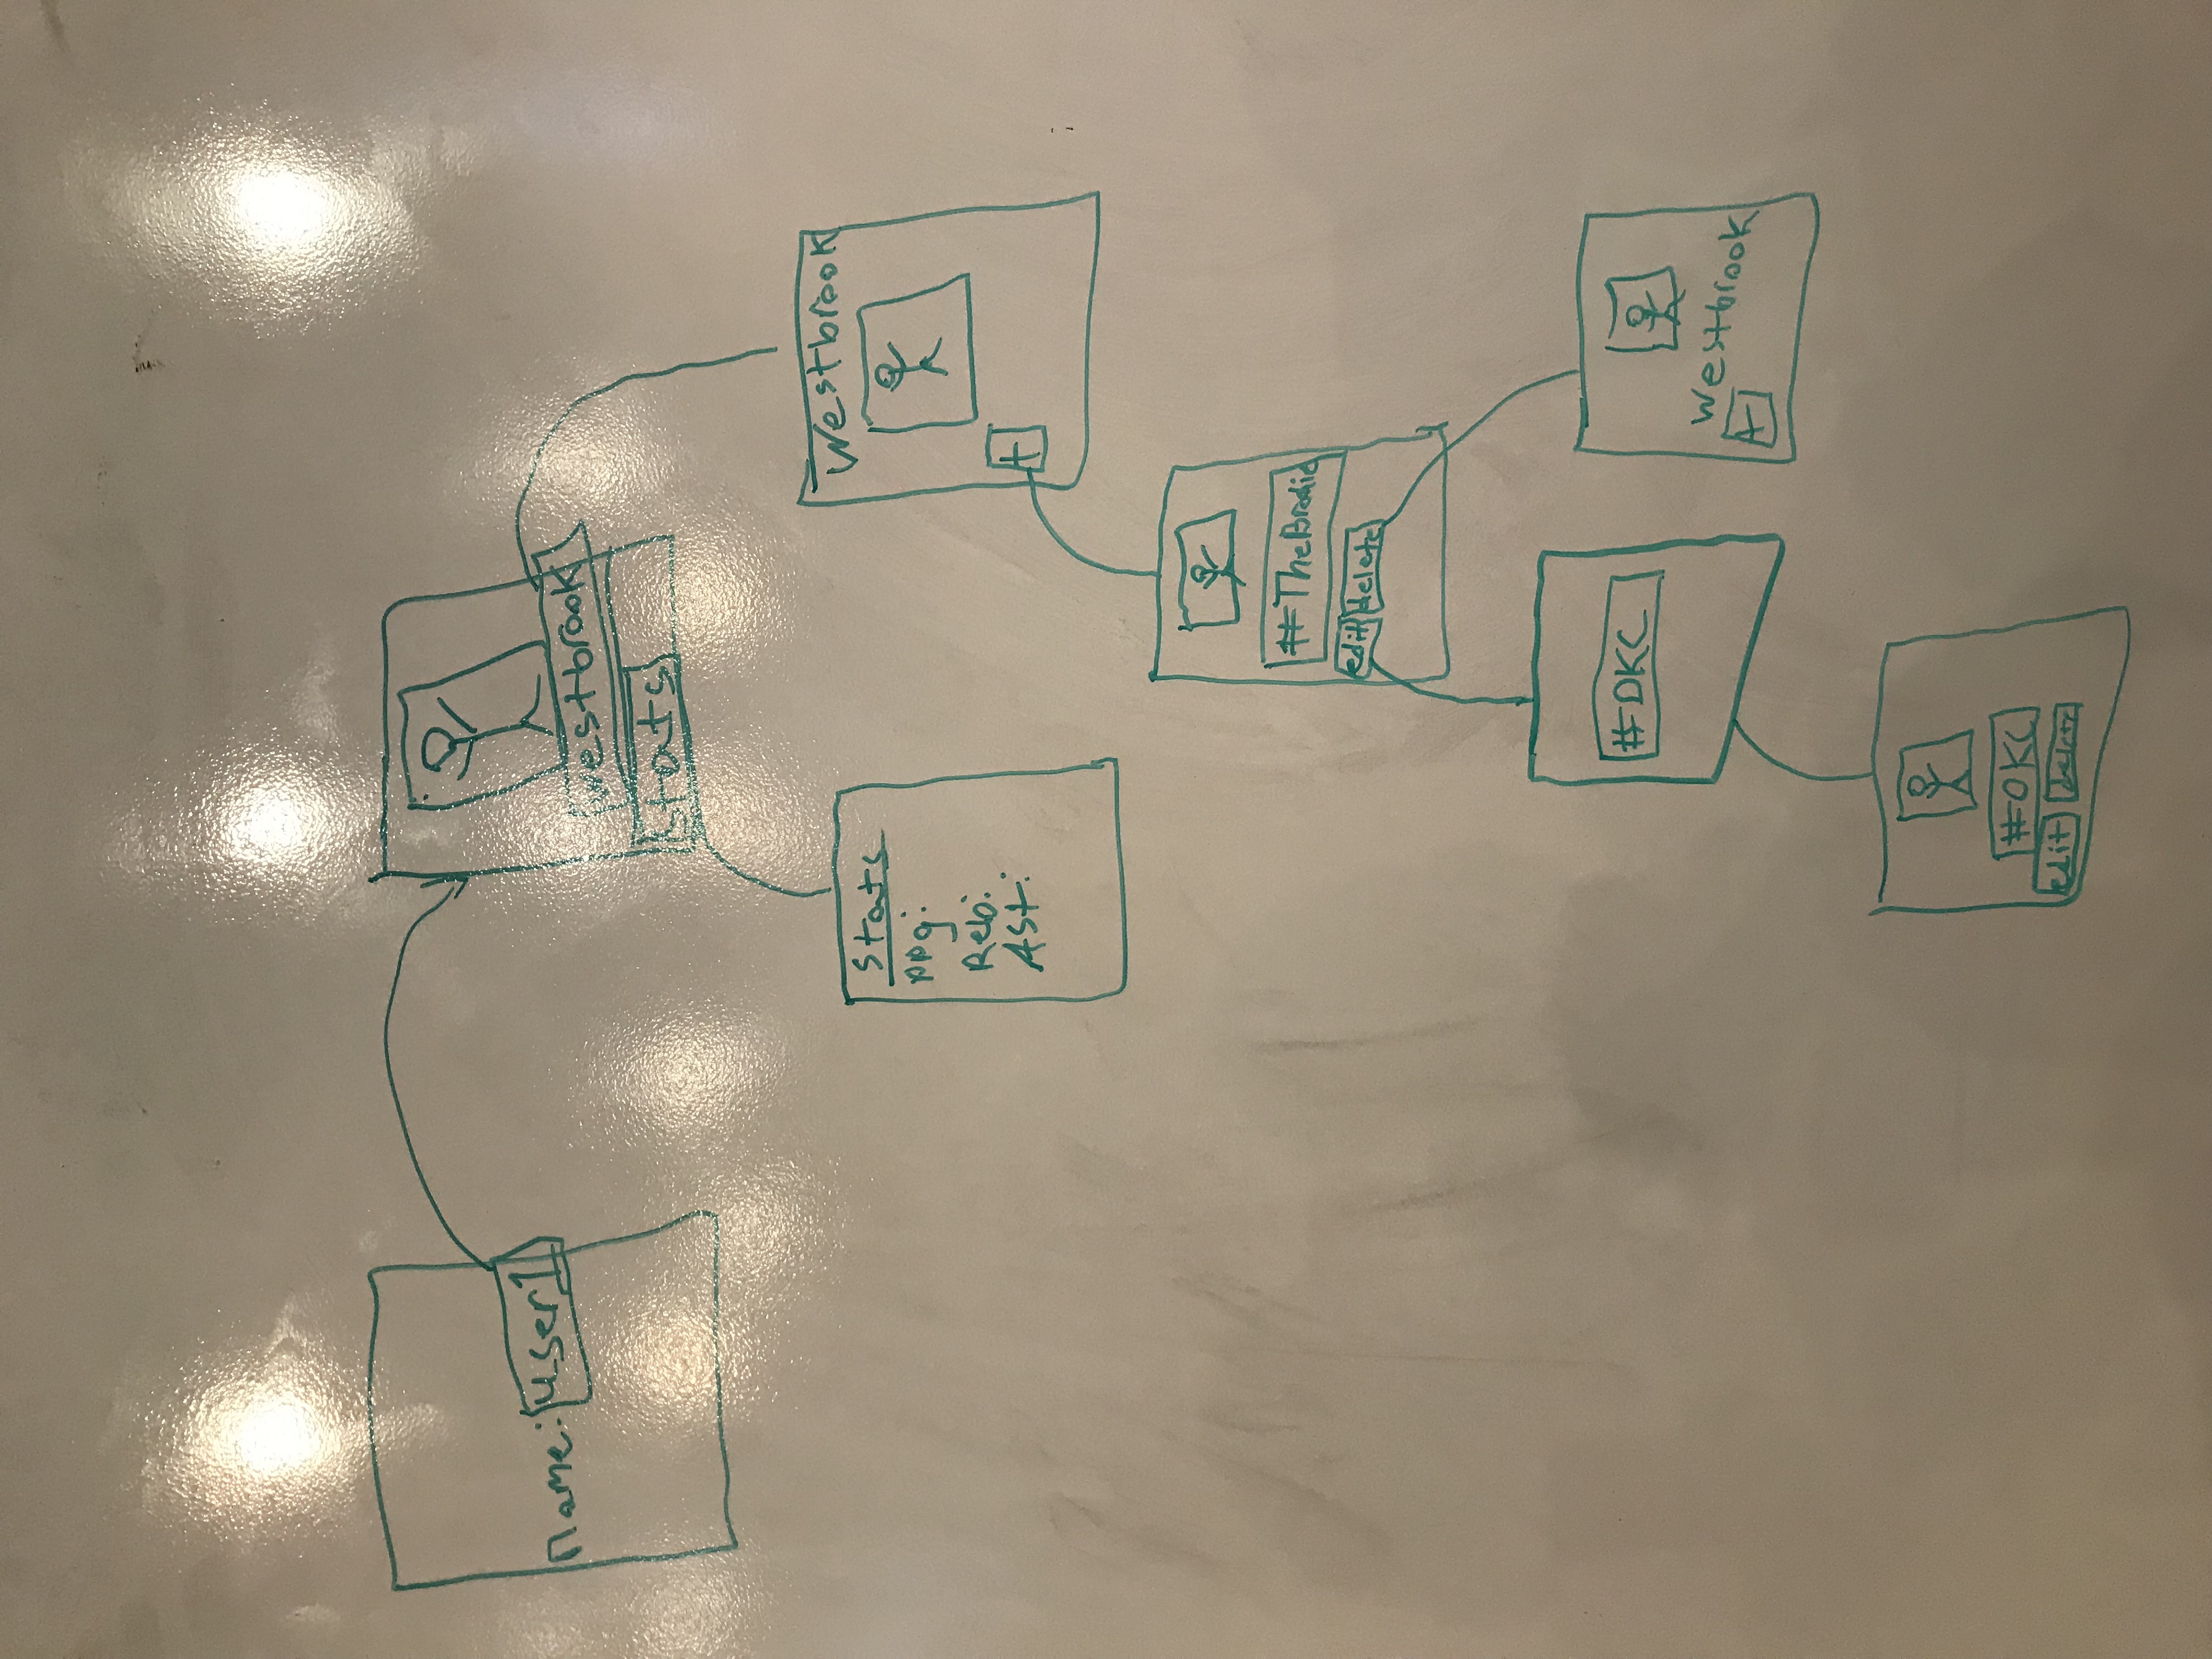 Name: user1
Westbrook
Stats
Stats
PPg:
Reb:
Ast:
Westbrook
+
#TheBrodie
edit delete
#OKC
Westbrook
+
#OKC
edit delete